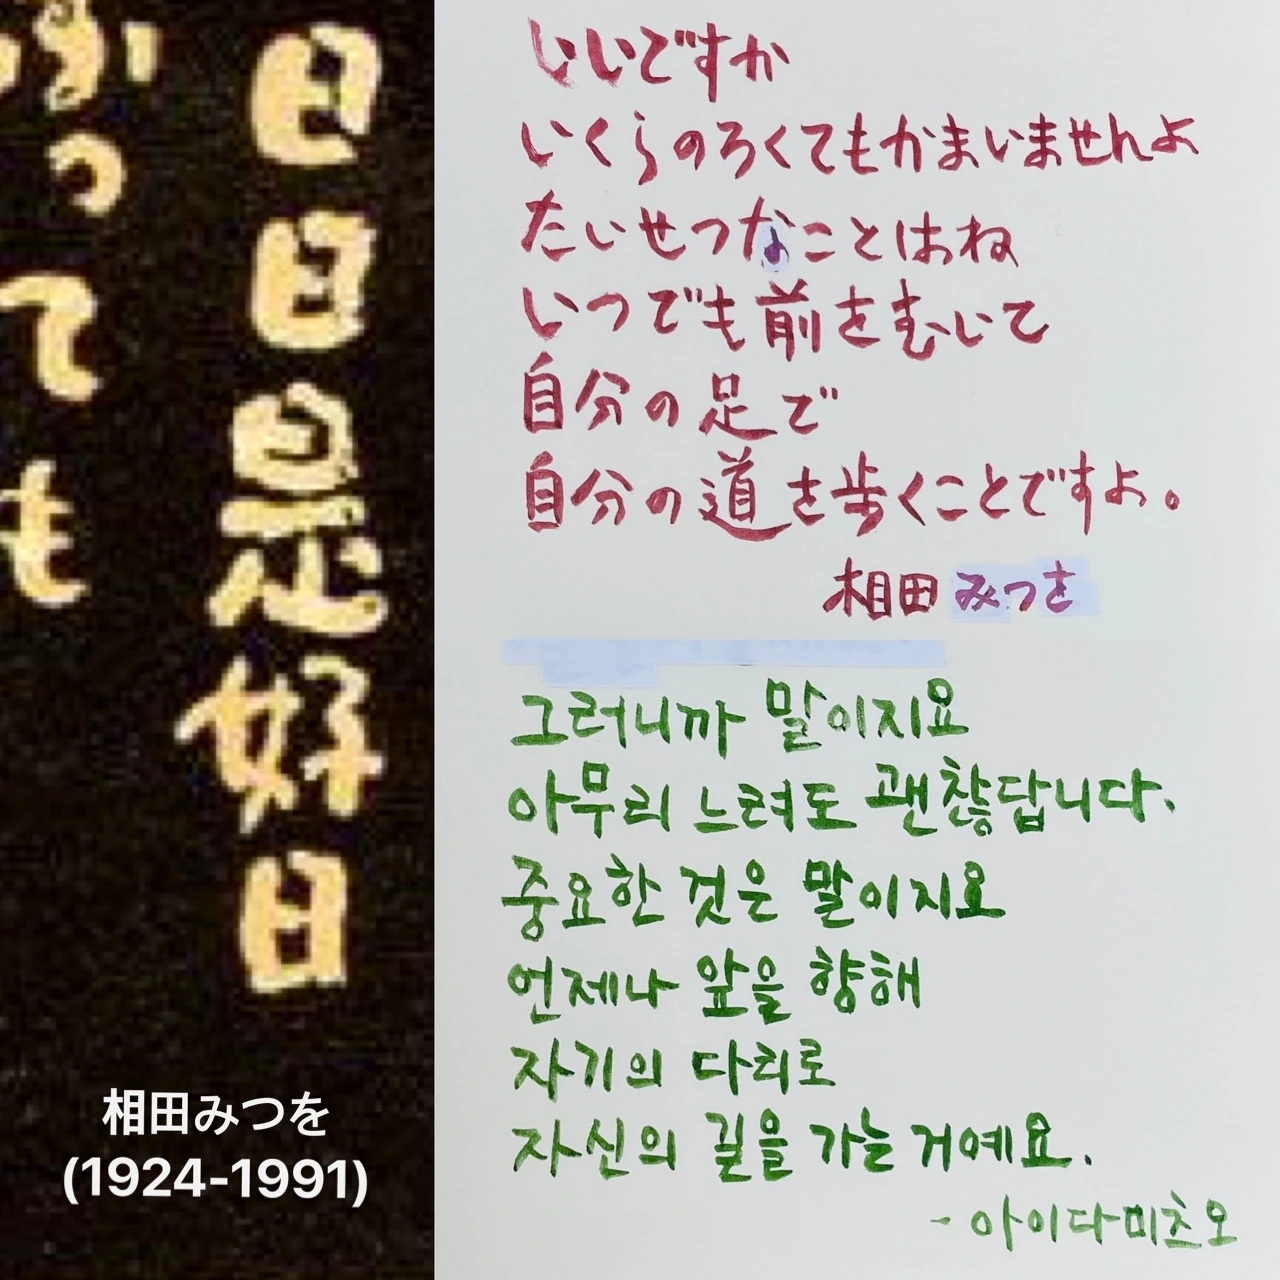 日日是好日
ふっても
相田みつを
(1924-1991)
いいですか
いくらのろくてもかまいませんよ
たいせつなことはね
いつでも前をむいて
自分の足で
自分の道を歩くことですよ。
相田みつを
그러니까 말이지요
아무리 느려도 괜찮답니다.
중요한 것은 말이지요
언제나 앞을 향해
자기의 다리로
자신의 길을 가는 거예요.
- 아이다 미츠오